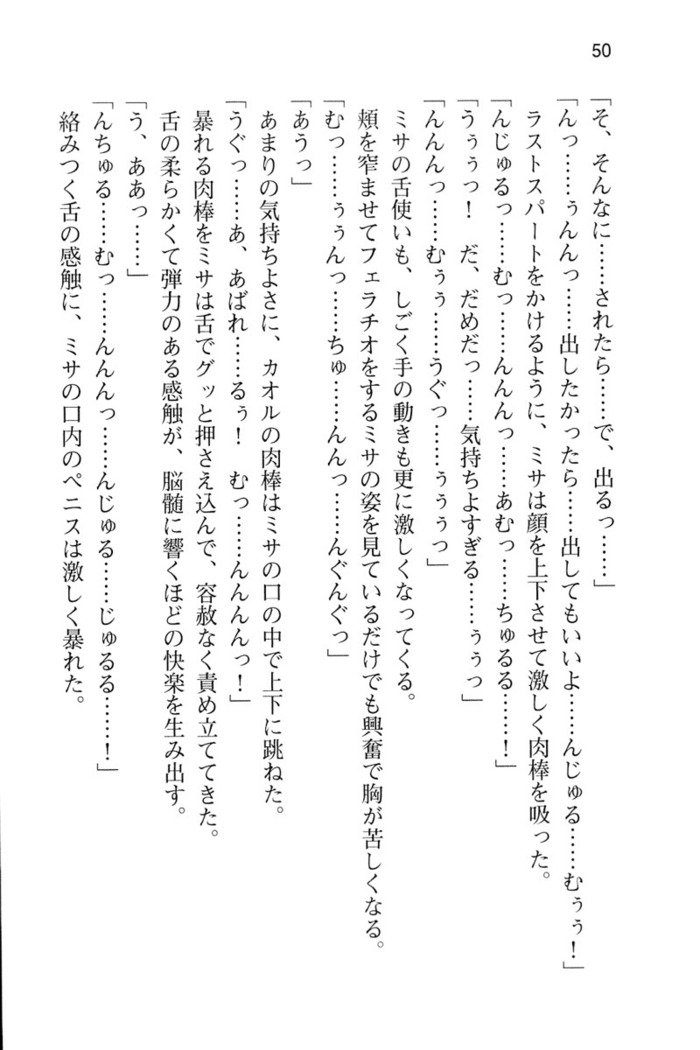 50
「そ、そんなに……されたら……で、出るっ……」
「んっ……ぅんんっ……出したかったら……出してもいいよ……んじゅる……むぅぅ！」
ラストスパートをかけるように、ミサは顔を上下させて激しく肉棒を吸った。
「んじゅるっ……むっ……んんんっ……あむっ……ちゅるる……！」
「うぅぅっ！　だ、だめだっ……気持ちよすぎる……ぅぅっ」
「んんんっ……むぅぅ……うぐっ……ぅぅぅっ」
ミサの舌使いも、しごく手の動きも更に激しくなってくる。
頬を窄ませてフェラチオをするミサの姿を見ているだけでも興奮で胸が苦しくなる。
「むっ……ぅぅんっ……ちゅ……んんっ……んぐんぐっ」
「あうっ」
あまりの気持ちよさに、カオルの肉棒はミサの口の中で上下に跳ねた。
「うぐっ……あ、あばれ……るぅ！　むっ……んんんんっ！」
暴れる肉棒をミサは舌でグッと押さえ込んで、容赦なく責め立ててきた。
舌の柔らかくて弾力のある感触が、脳髄に響くほどの快楽を生み出す。
「う、ああっ……」
「んちゅる……むっ……んんんっ……んじゅる……じゅるる……！」
絡みつく舌の感触に、ミサの口内のペニスは激しく暴れた。